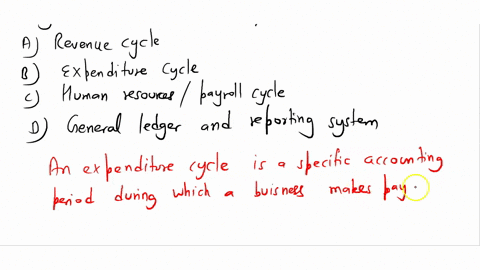 A) Revenue cycle
B) Expenditure cycle
C) Human resources / payroll cycle
D) General ledger and reporting system
An expenditure cycle is a specific accounting
period during which a buisness makes pay